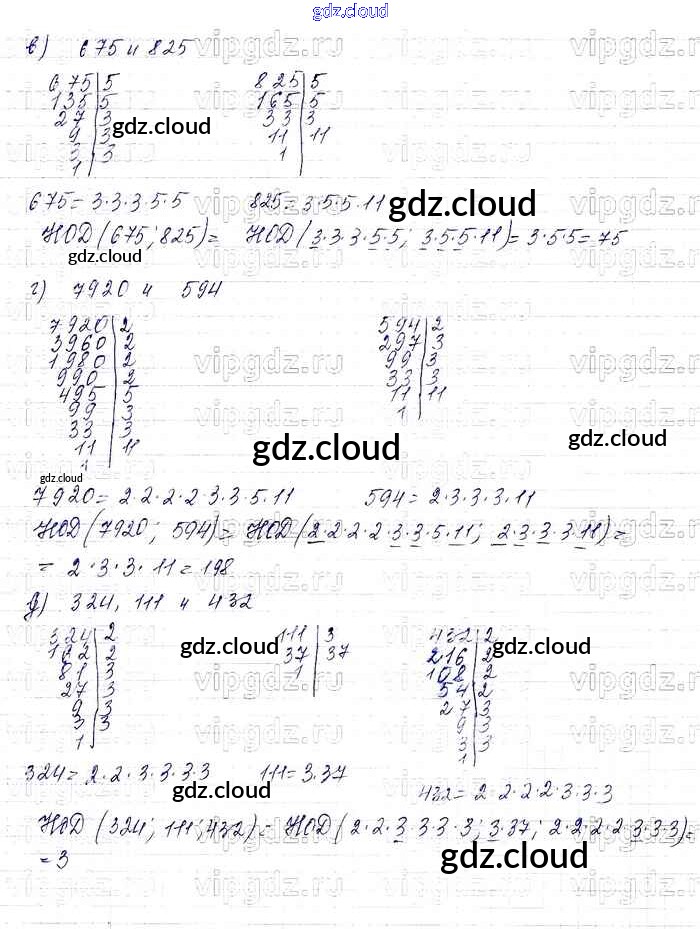 gdz.cloud
в) 675 и 825
675|5 825|5
135|5 165|5
27|3 33|3
9|3 11|11
3|3 1|
1|
gdz.cloud
675=3·3·3·5·5 825=3·5·5·11 gdz.cloud
НОД(675;825)= НОД(3·3·3·5·5; 3·5·5·11)=3·5·5=75
gdz.cloud
г) 7920 и 594
7920|2 594|2
3960|2 297|3
1980|2 99|3
990|2 33|3
495|5 11|11
99|3 1|
33|3
11|11
1|
gdz.cloud
gdz.cloud
gdz.cloud
7920=2·2·2·2·3·3·5·11 594=2·3·3·3·11
НОД(7920; 594)= НОД(2·2·2·2·3·3·5·11; 2·3·3·3·11)=
= 2·3·3·11=198
д) 324, 111 и 432
324|2 111|3 432|2
162|2 37|37 216|2
81|3 1| 108|2
27|3 54|2
9|3 27|3
3|3 9|3
1| 3|3
1|
gdz.cloud
gdz.cloud
gdz.cloud
324=2·2·3·3·3·3 111=3·37
gdz.cloud
432=2·2·2·2·3·3·3
НОД(324; 111; 432)=НОД(2·2·3·3·3·3; 3·37; 2·2·2·2·3·3·3)=
=3
gdz.cloud
vipgdz.ru